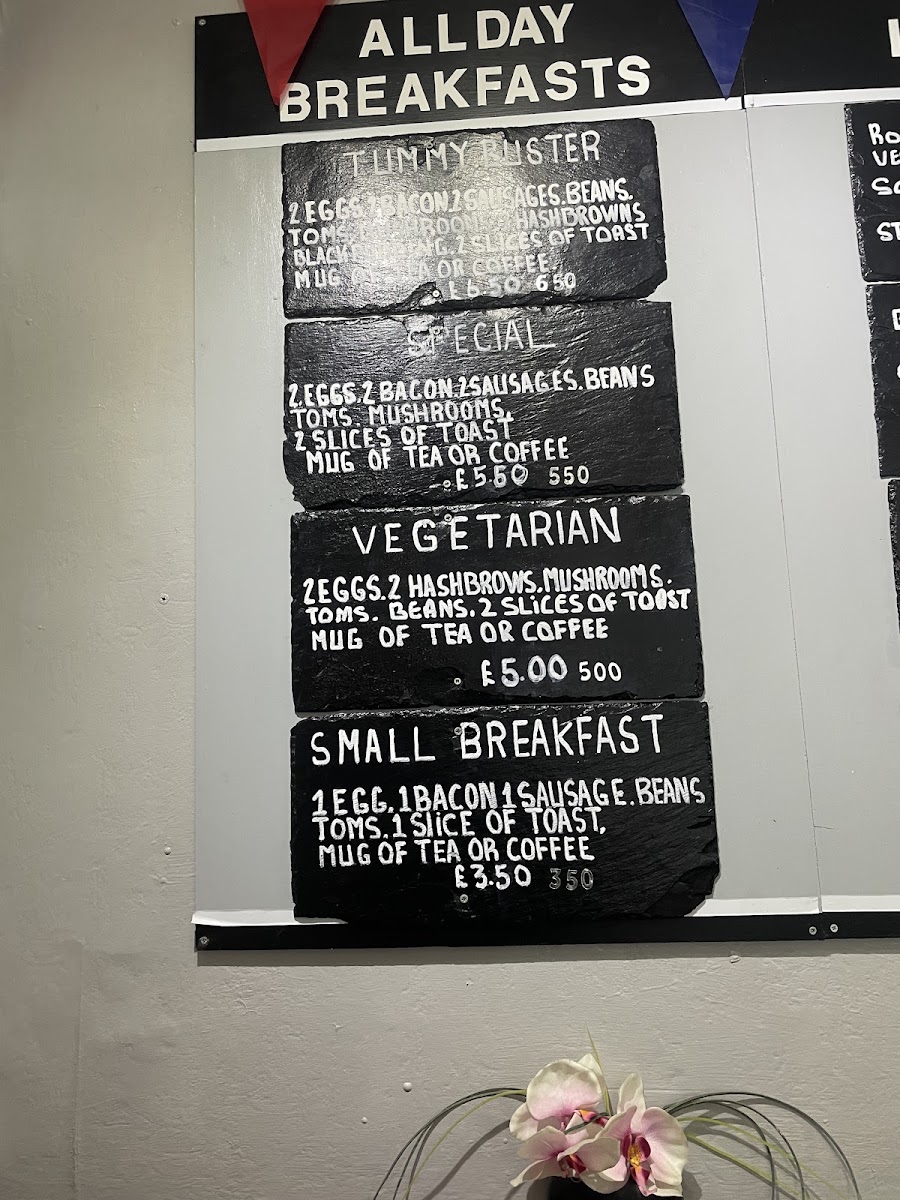 ALL DAY
BREAKFASTS
TUMMY BUSTER
2 EGGS. 2 BACON. 2 SAUSAGES. BEANS.
TOMS. HASHBROWNS
2 SLICES OF TOAST
MUG OF TEA OR COFFEE
£6.50 650
SPECIAL
2. EGGS. 2 BACON. 2 SAUSAGES. BEANS
TOMS. MUSHROOMS.
2 SLICES OF TOAST
MUG OF TEA OR COFFEE
£5.50 550
VEGETARIAN
2 EGGS. 2 HASHBROWS. MUSHROOMS.
TOMS. BEANS. 2 SLICES OF TOAST
MUG OF TEA OR COFFEE
£5.00 500
SMALL BREAKFAST
1 EGG. 1 BACON 1 SAUSAGE. BEANS
TOMS. 1 SLICE OF TOAST.
MUG OF TEA OR COFFEE
£3.50 350